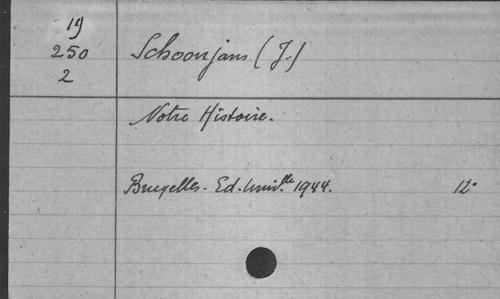 19
250
2
Schoonjans (J.)
Notre Histoire.
Bruxelles. Ed. Univ.lle 1944. 12°